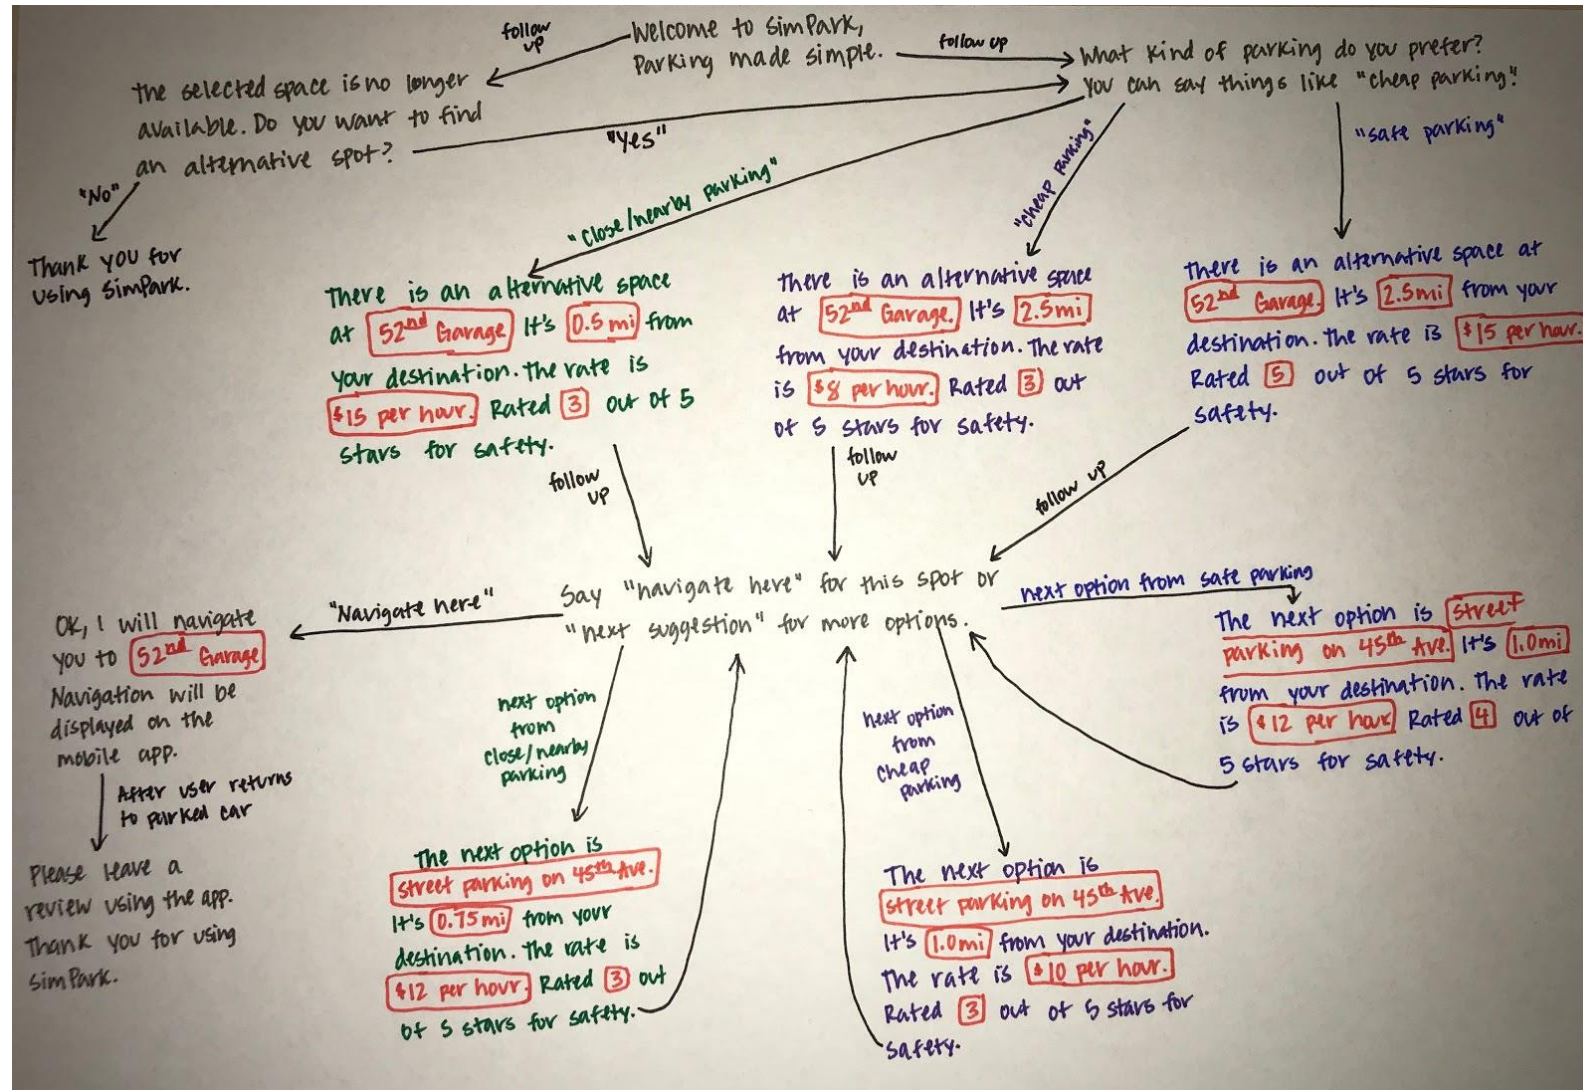 Welcome to SimPark,
Parking made simple.
follow
up
follow up
The selected space is no longer
available. Do you want to find
an alternative spot?
"Yes"
"No"
Thank you for
using SimPark.
What kind of parking do you prefer?
You can say things like "cheap parking".
"close/nearby parking"
"cheap parking"
"safe parking"
There is an alternative space
at 52nd Garage. It's 0.5 mi from
your destination. The rate is
$15 per hour. Rated 3 out of 5
stars for safety.
There is an alternative space
at 52nd Garage. It's 2.5mi
from your destination. The rate
is $8 per hour. Rated 3 out
of 5 stars for safety.
There is an alternative space at
52nd Garage. It's 2.5mi from your
destination. The rate is $15 per hour.
Rated 5 out of 5 stars for
safety.
follow
up
follow
up
follow up
Say "navigate here" for this spot or
"next suggestion" for more options.
"Navigate here"
OK, I will navigate
you to 52nd Garage
Navigation will be
displayed on the
mobile app.
After user returns
to parked car
Please leave a
review using the app.
Thank you for using
SimPark.
next option
from
close/nearby
parking
The next option is
street parking on 45th Ave.
It's 0.75 mi from your
destination. The rate is
$12 per hour. Rated 3 out
of 5 stars for safety.
next option
from
cheap
parking
The next option is
street parking on 45th Ave.
It's 1.0mi from your destination.
The rate is $10 per hour.
Rated 3 out of 5 stars for
safety.
next option from safe parking
The next option is street
parking on 45th Ave. It's 1.0mi
from your destination. The rate
is $12 per hour Rated 4 out of
5 stars for safety.